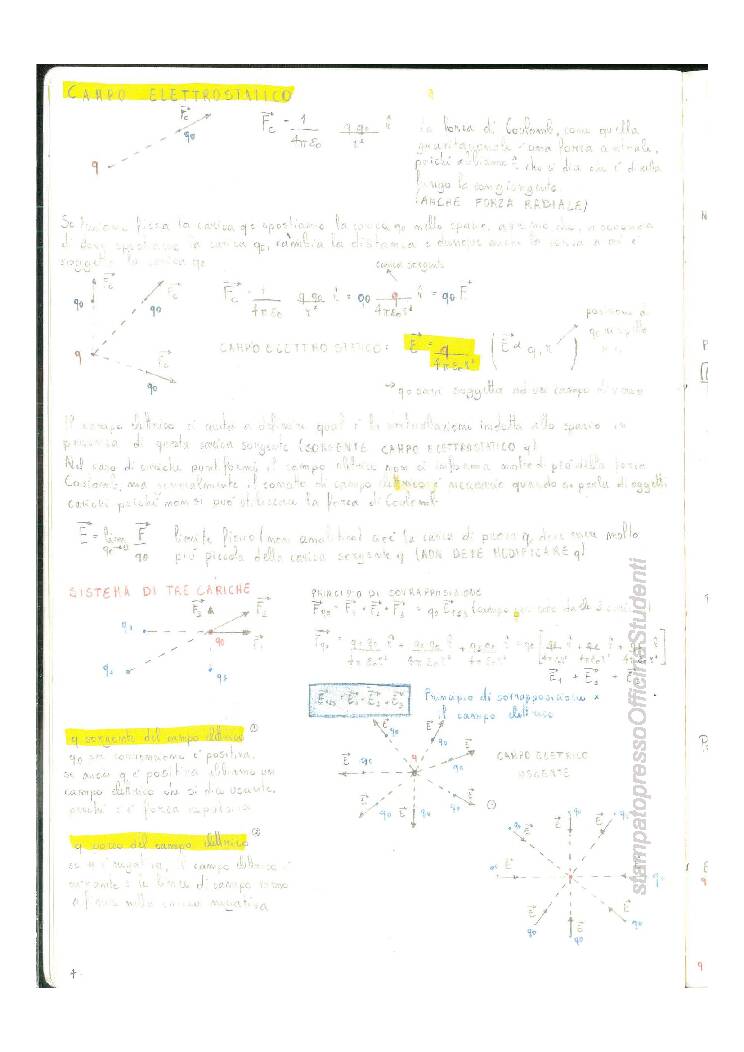 CAMPO ELETTROSTATICO
Fc = 1/4πε0 q q0/r² r̂
La forza di Coulomb, come quella
gravitazionale è una forza centrale,
poiché abbiamo r̂ che ci dice che è diretta
lungo la congiungente.
(ANCHE FORZA RADIALE)
Se teniamo fissa la carica q e spostiamo la carica q0 nello spazio, a seconda
di dove spostiamo la carica q0, cambia la distanza e dunque anche la forza a cui è
soggetta la carica q0
carica sorgente
Fc = 1/4πε0 q q0/r² r̂ = q0 q/4πε0r² r̂ = q0 E
posizione di
q0 rispetto
CAMPO ELETTROSTATICO: E = q/4πε0r² (E α q, r)
q0 sarà soggetta ad un campo diverso
Il campo elettrico ci aiuta a definire qual è la perturbazione indotta allo spazio in
presenza di questa carica sorgente (SORGENTE CAMPO ELETTROSTATICO q)
Nel caso di cariche puntiformi il campo elettrico non ci informa molto di più della forza
Coulomb, ma generalmente il campo elettrico è necessario quando si parla di oggetti
carichi poiché non si può utilizzare la forza di Coulomb.
E = lim q0→0 F/q0 limite fisico (non analitico) cioè la carica di prova q0 deve essere molto
più piccola della carica sorgente q (NON DEVE MODIFICARE q)
SISTEMA DI TRE CARICHE
PRINCIPIO DI SOVRAPPOSIZIONE
Fq0 = F1 + F2 + F3 = q0 E123
E1 + E2 + E3
E123 = E1 + E2 + E3
Principio di sovrapposizione x
il campo elettrico
q sorgente del campo elettrico ①
q0 per convenzione è positiva,
se anche q è positiva abbiamo un
campo elettrico che si dice uscente,
perché è forza repulsiva
CAMPO ELETTRICO
USCENTE
①
q pozzo del campo elettrico ②
se q è negativa, il campo elettrico è
entrante e le linee di campo vanno
a finire nella carica negativa
4
stampatopressoOfficinaStudenti